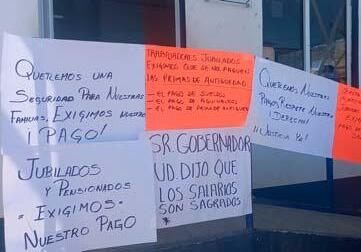 QUEREMOS UNA
SEGURIDAD PARA NUESTRAS
FAMILIAS, EXIGIMOS NUESTRO
¡PAGO!
TRABAJADORES JUBILADOS
EXIGIMOS QUE SE NOS PAGUEN
LAS PRIMAS DE ANTIGÜEDAD
- EL PAGO DE SUELDOS
- EL PAGO DE AGUINALDOS
- EL PAGO DE
QUEREMOS NUESTRO
PAGO, RESPETE NUESTRO
¡DERECHO!
¡JUSTICIA YA!
JUBILADOS
Y PENSIONADOS
= EXIGIMOS =
NUESTRO PAGO
SR. GOBERNADOR
UD. DIJO QUE
LOS SALARIOS
SON SAGRADOS